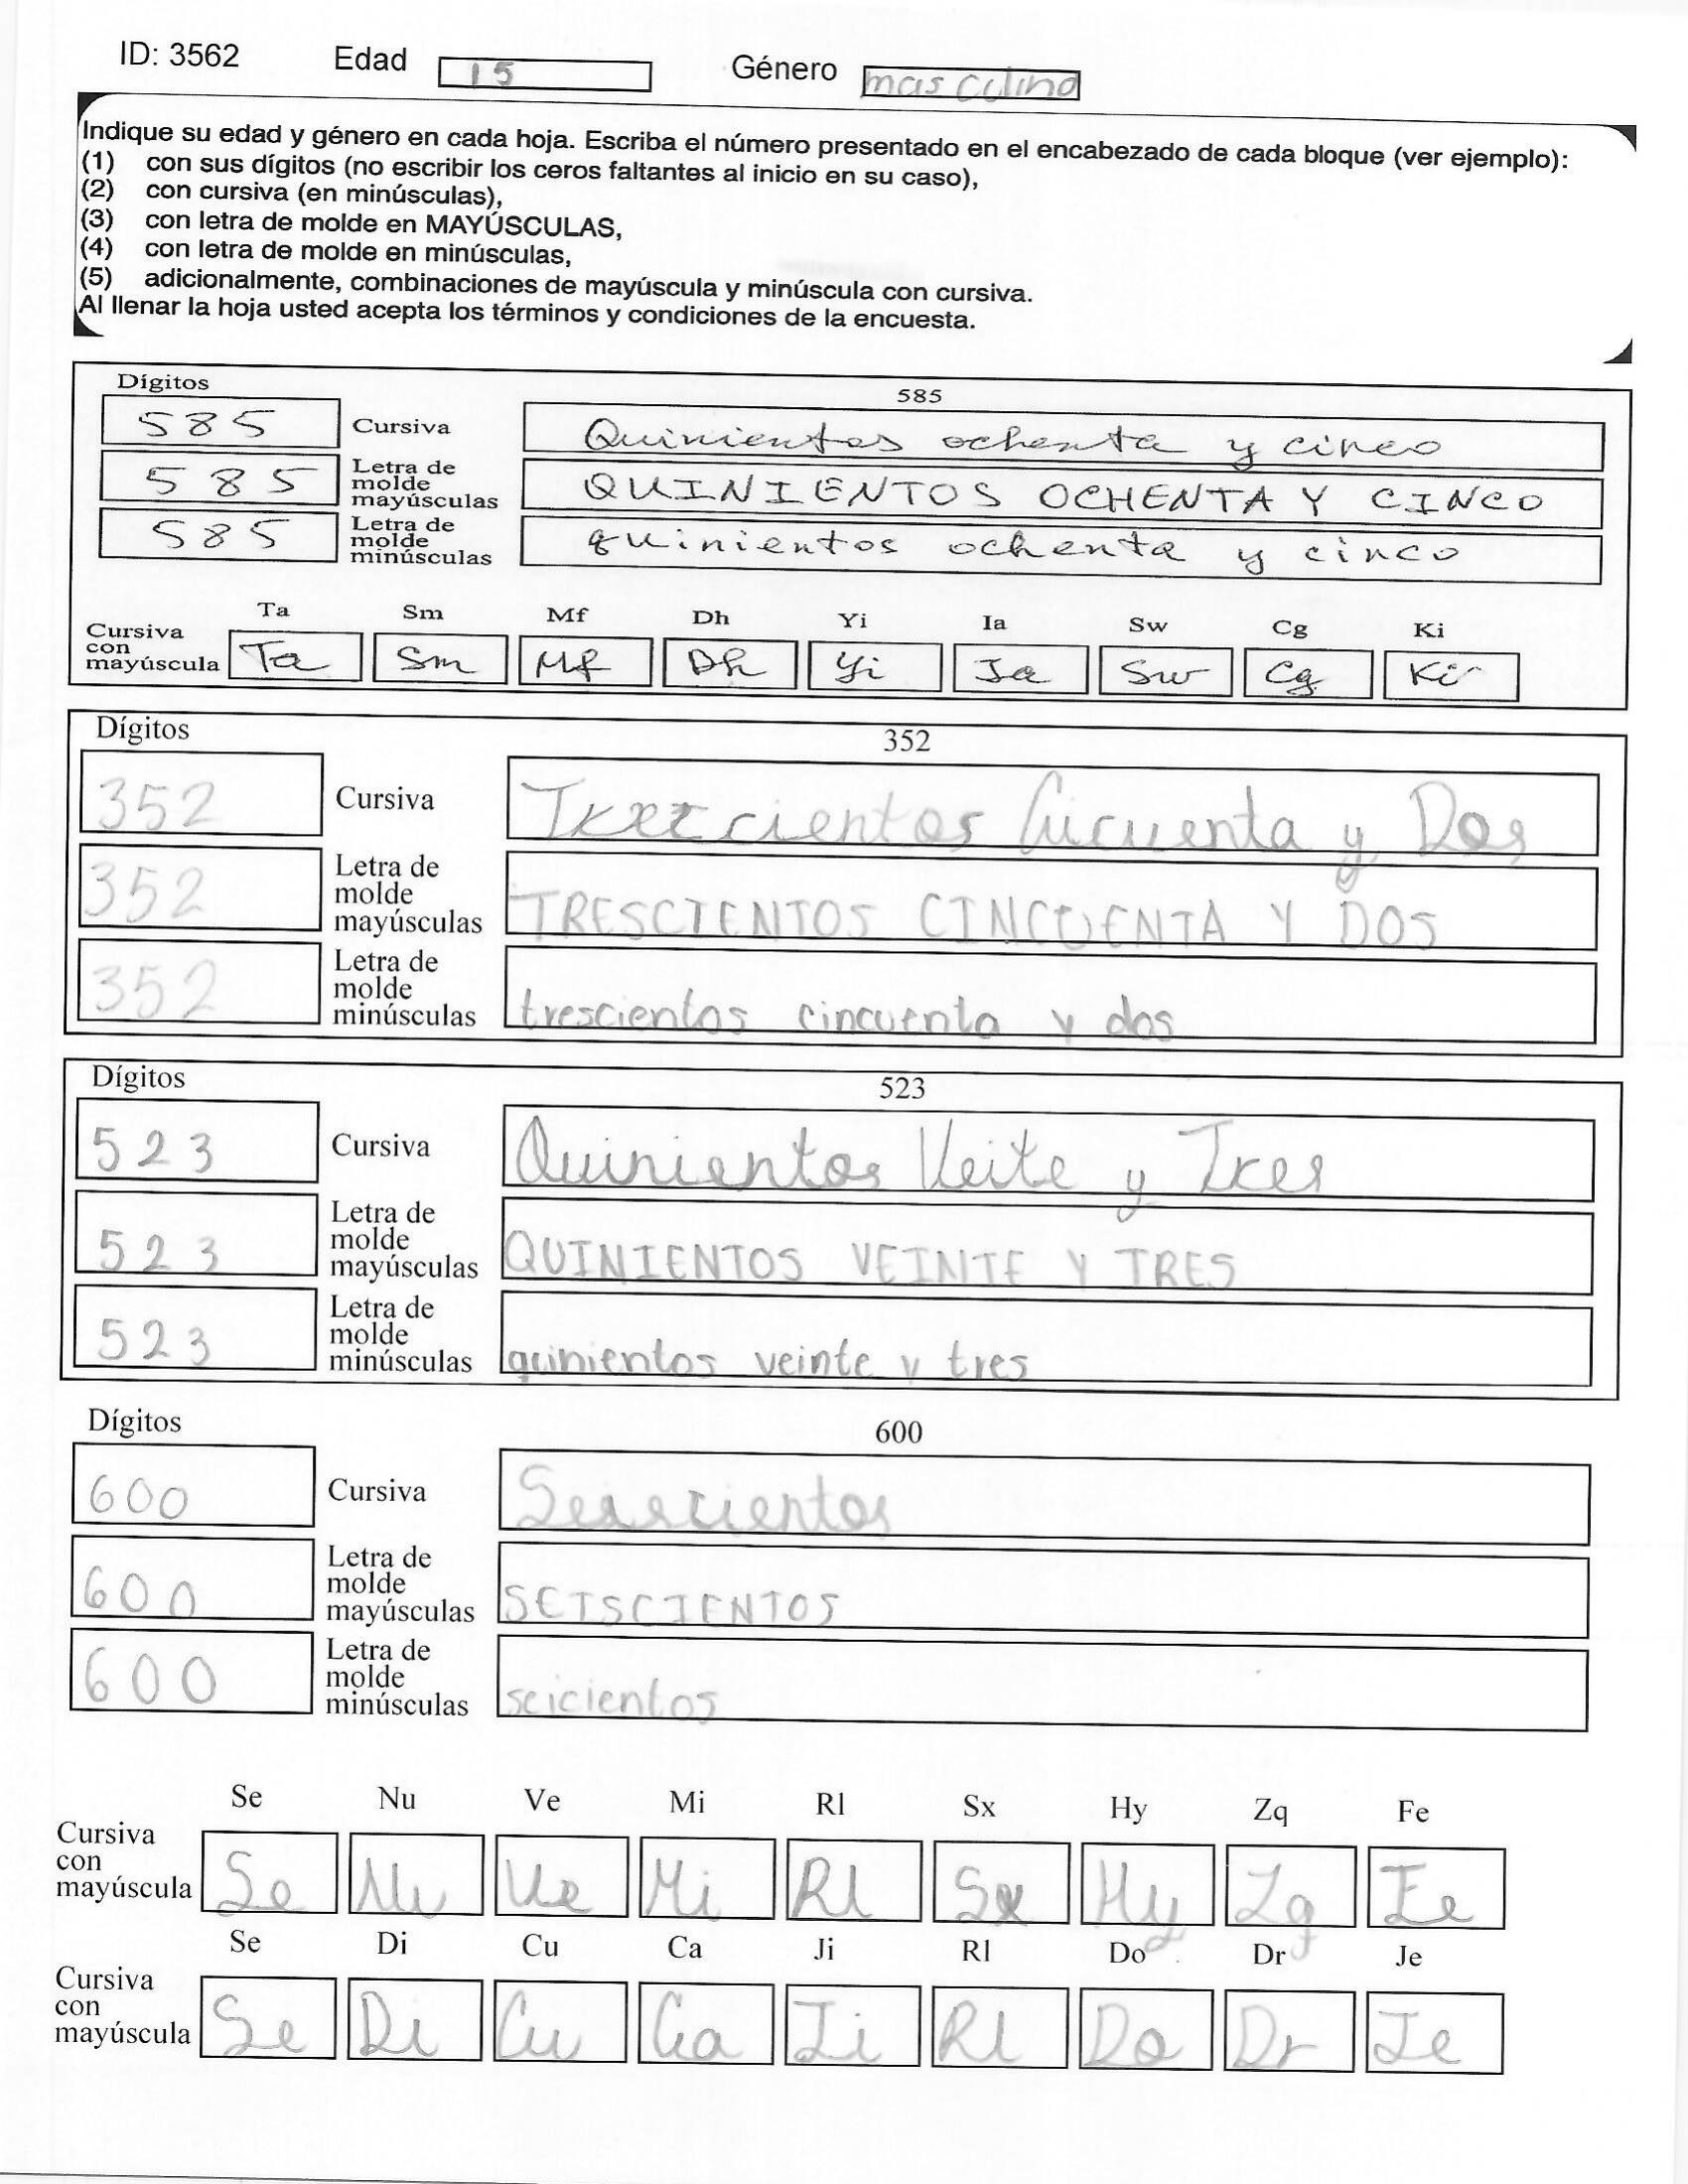 ID: 3562 Edad 15 Género masculino
Indique su edad y género en cada hoja. Escriba el número presentado en el encabezado de cada bloque (ver ejemplo):
(1) con sus dígitos (no escribir los ceros faltantes al inicio en su caso),
(2) con cursiva (en minúsculas),
(3) con letra de molde en MAYÚSCULAS,
(4) con letra de molde en minúsculas,
(5) adicionalmente, combinaciones de mayúscula y minúscula con cursiva.
Al llenar la hoja usted acepta los términos y condiciones de la encuesta.
Dígitos 585
585 Cursiva Quinientos ochenta y cinco
585 Letra de molde mayúsculas QUINIENTOS OCHENTA Y CINCO
585 Letra de molde minúsculas quinientos ochenta y cinco
Ta Sm Mf Dh Yi Ia Sw Cg Ki
Cursiva con mayúscula Ta Sm Mf Dh Yi Ia Sw Cg Ki
Dígitos 352
352 Cursiva Cucuenta y Dos
352 Letra de molde mayúsculas TRESCIENTOS CINCUENTA Y DOS
352 Letra de molde minúsculas trescientos cincuenta y dos
Dígitos 523
523 Cursiva Quinientos Veite y Tres
523 Letra de molde mayúsculas QUINIENTOS VEINTE Y TRES
523 Letra de molde minúsculas quinientos veinte y tres
Dígitos 600
600 Cursiva
600 Letra de molde mayúsculas SEISCIENTOS
600 Letra de molde minúsculas seicientos
Se Nu Ve Mi Rl Sx Hy Zq Fe
Cursiva con mayúscula Se Nu Ve Mi Rl Sx Hy Zq Fe
Se Di Cu Ca Ji Rl Do Dr Je
Cursiva con mayúscula Se Di Cu Ca Ji Rl Do Dr Je